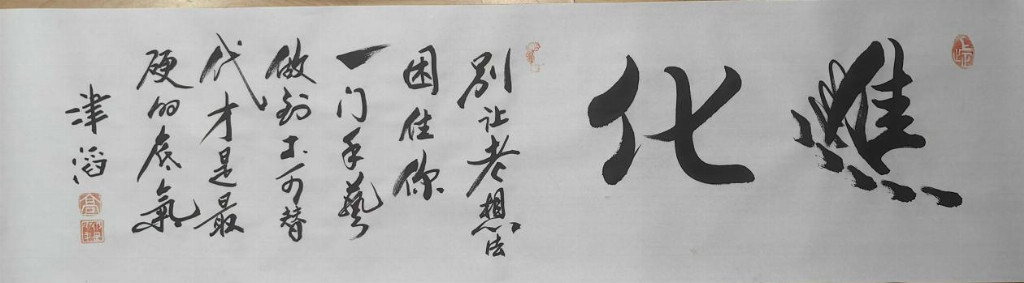 化
别让老想法
困住你
一门手藝
做到不可替
代才是最
硬的底氣
津滔